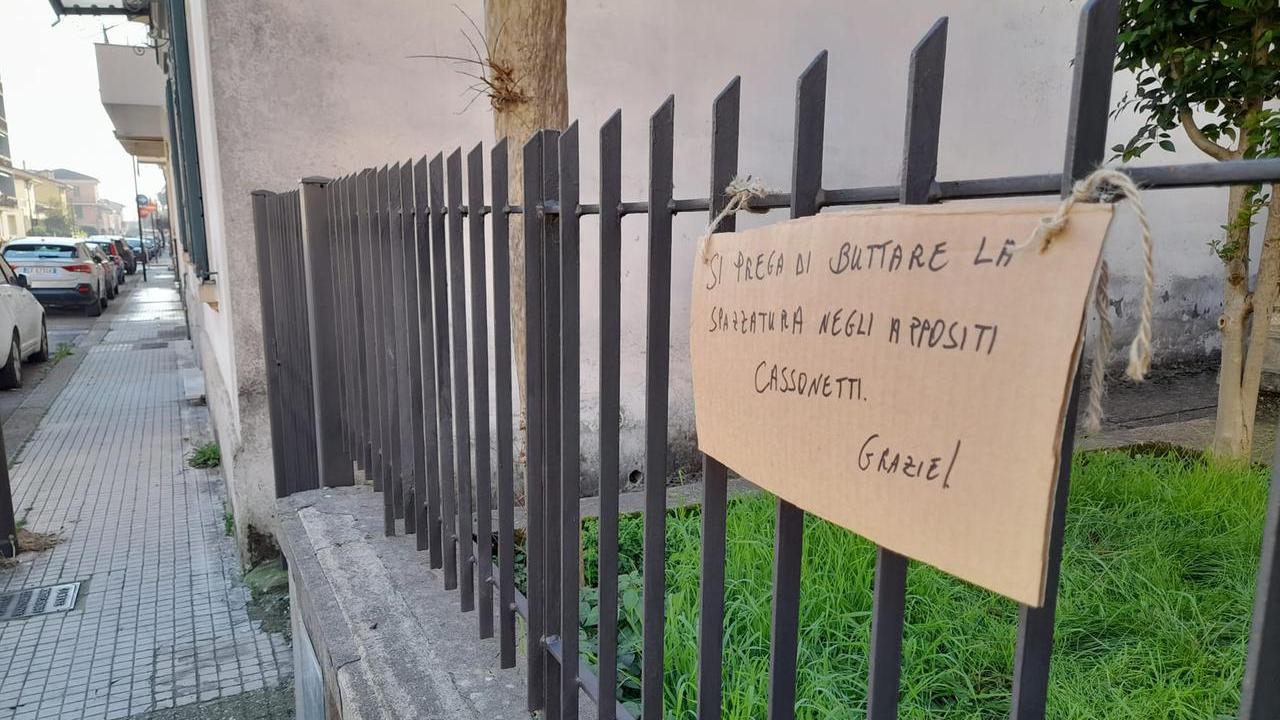 SI PREGA DI BUTTARE LA
SPAZZATURA NEGLI APPOSITI
CASSONETTI.
GRAZIE!